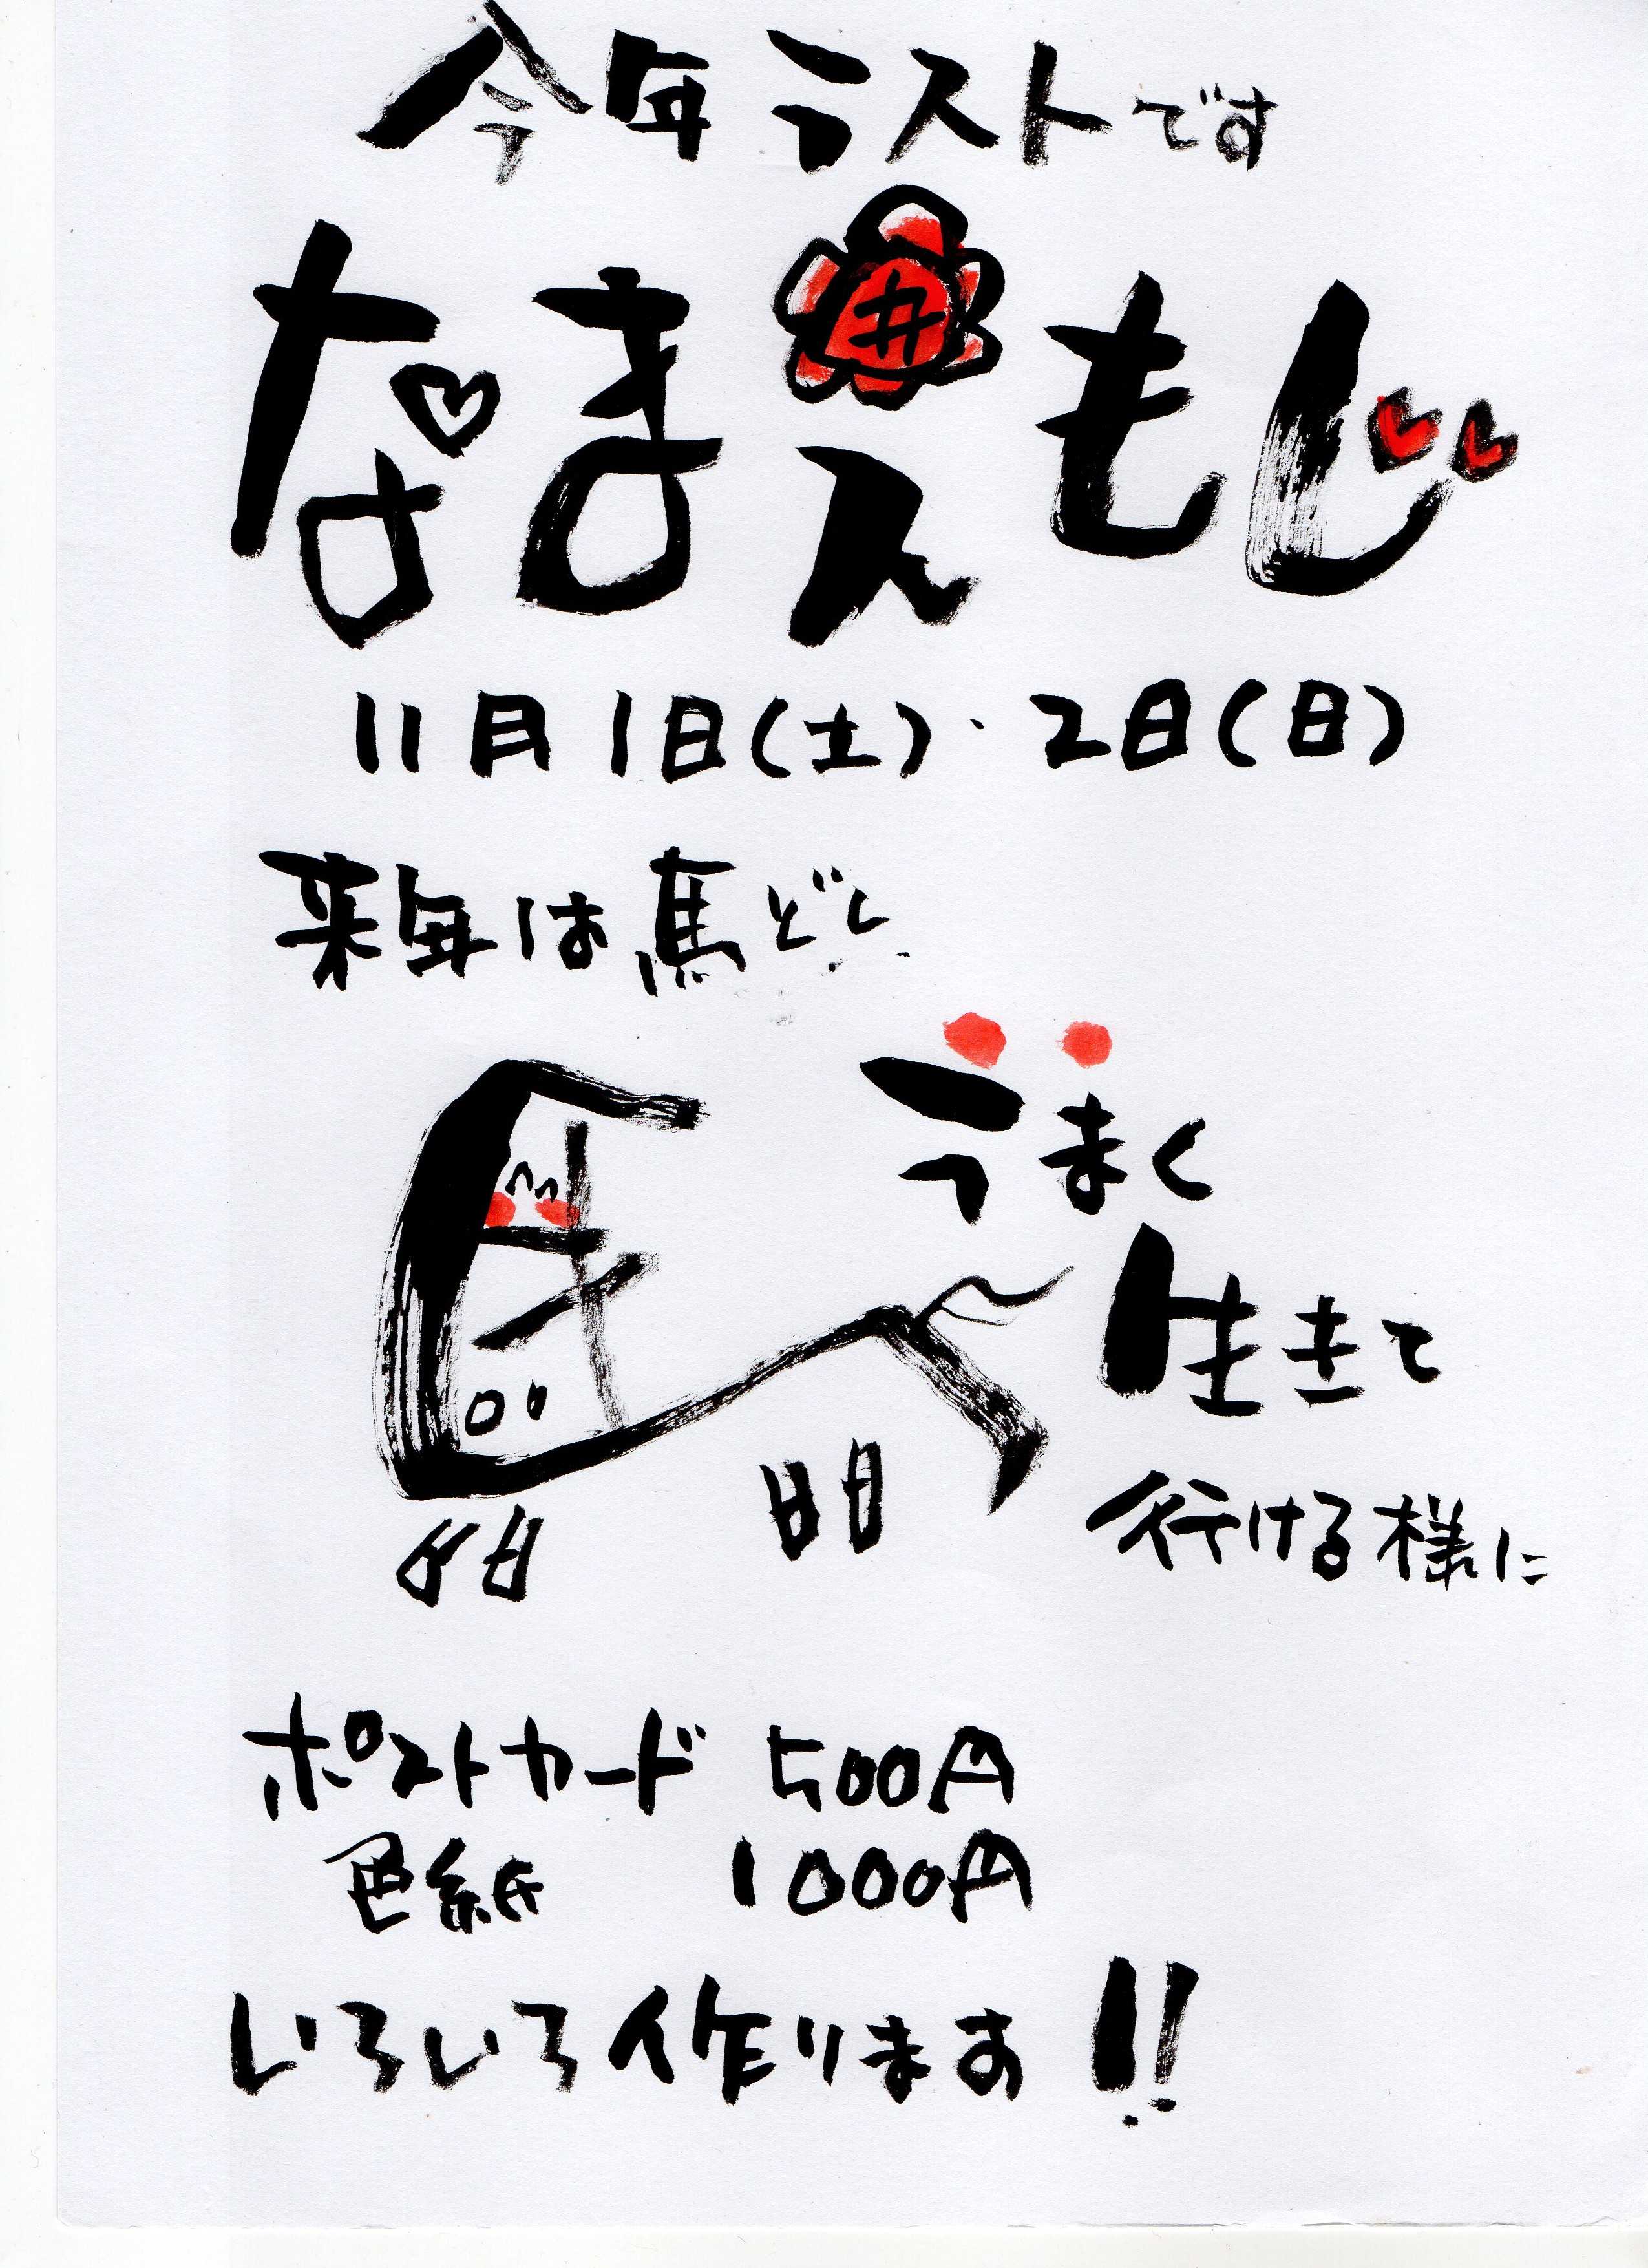 今年ラストです
なまえもじ
11月1日(土)・2日(日)
来年は馬どし
うまく
生きて
行ける様に
ポストカード 500円
色紙 1000円
いろいろ作ります!!